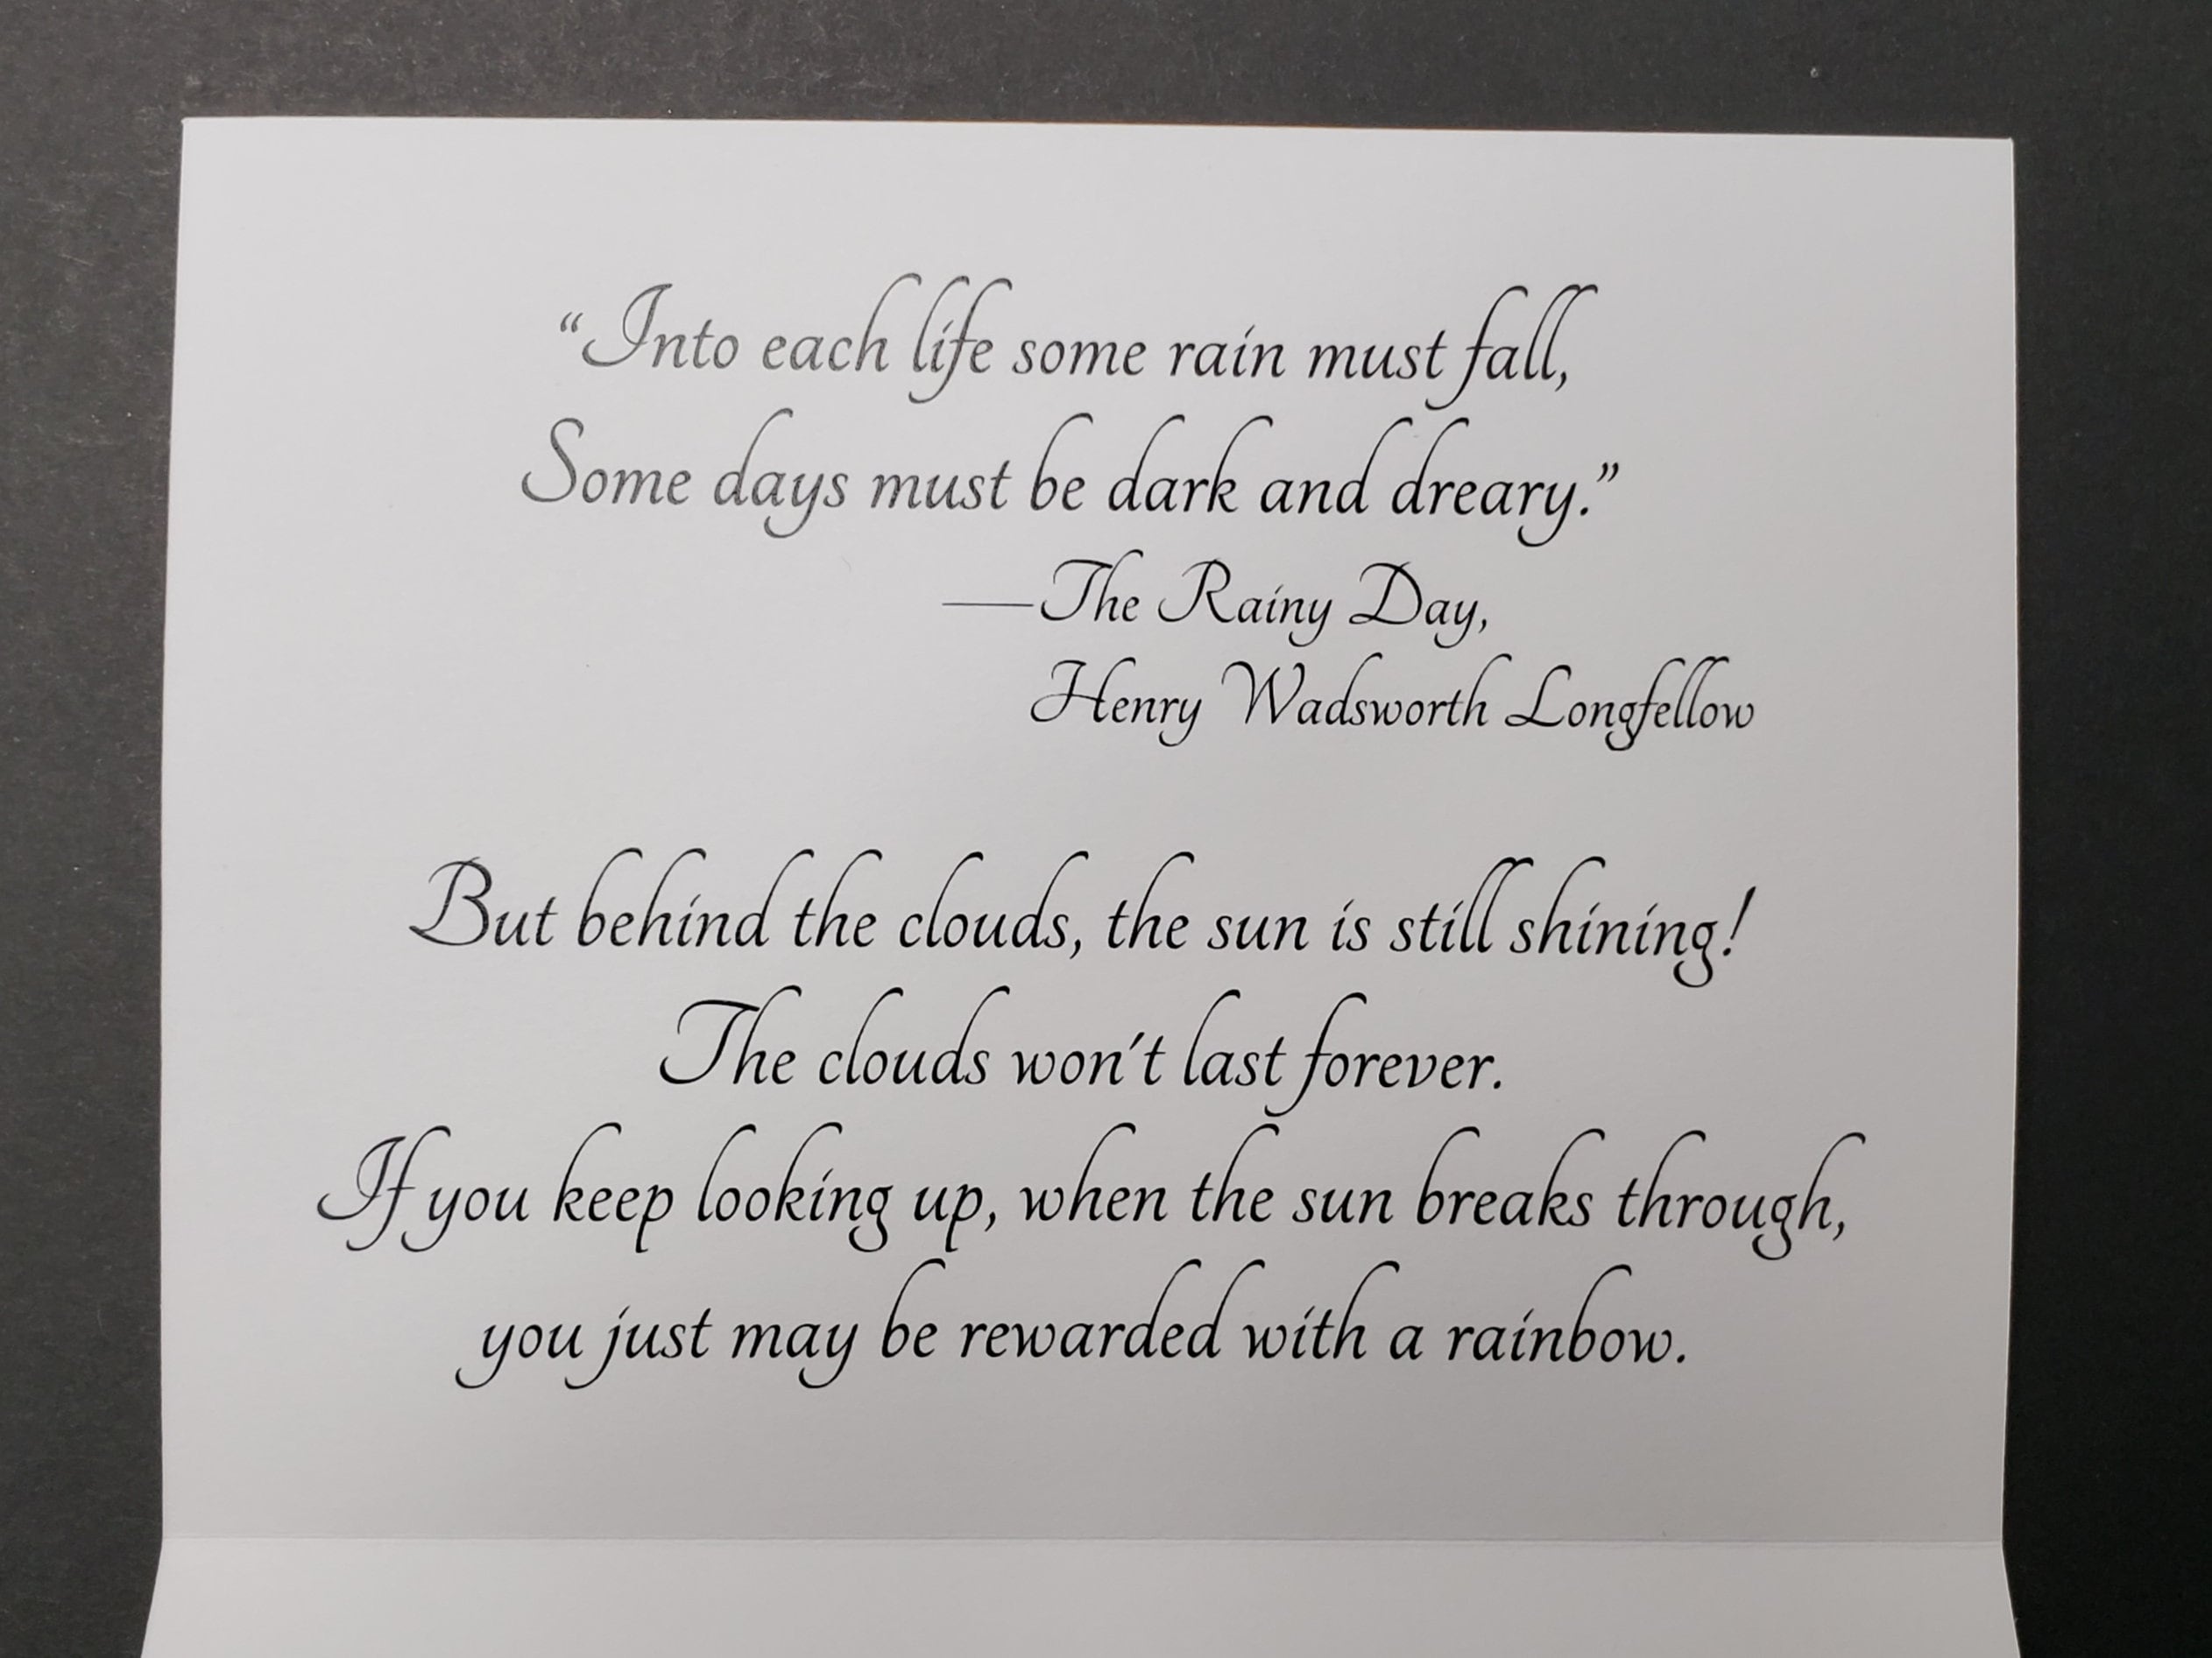 “Into each life some rain must fall,
Some days must be dark and dreary.”
—The Rainy Day,
Henry Wadsworth Longfellow
But behind the clouds, the sun is still shining!
The clouds won't last forever.
If you keep looking up, when the sun breaks through,
you just may be rewarded with a rainbow.